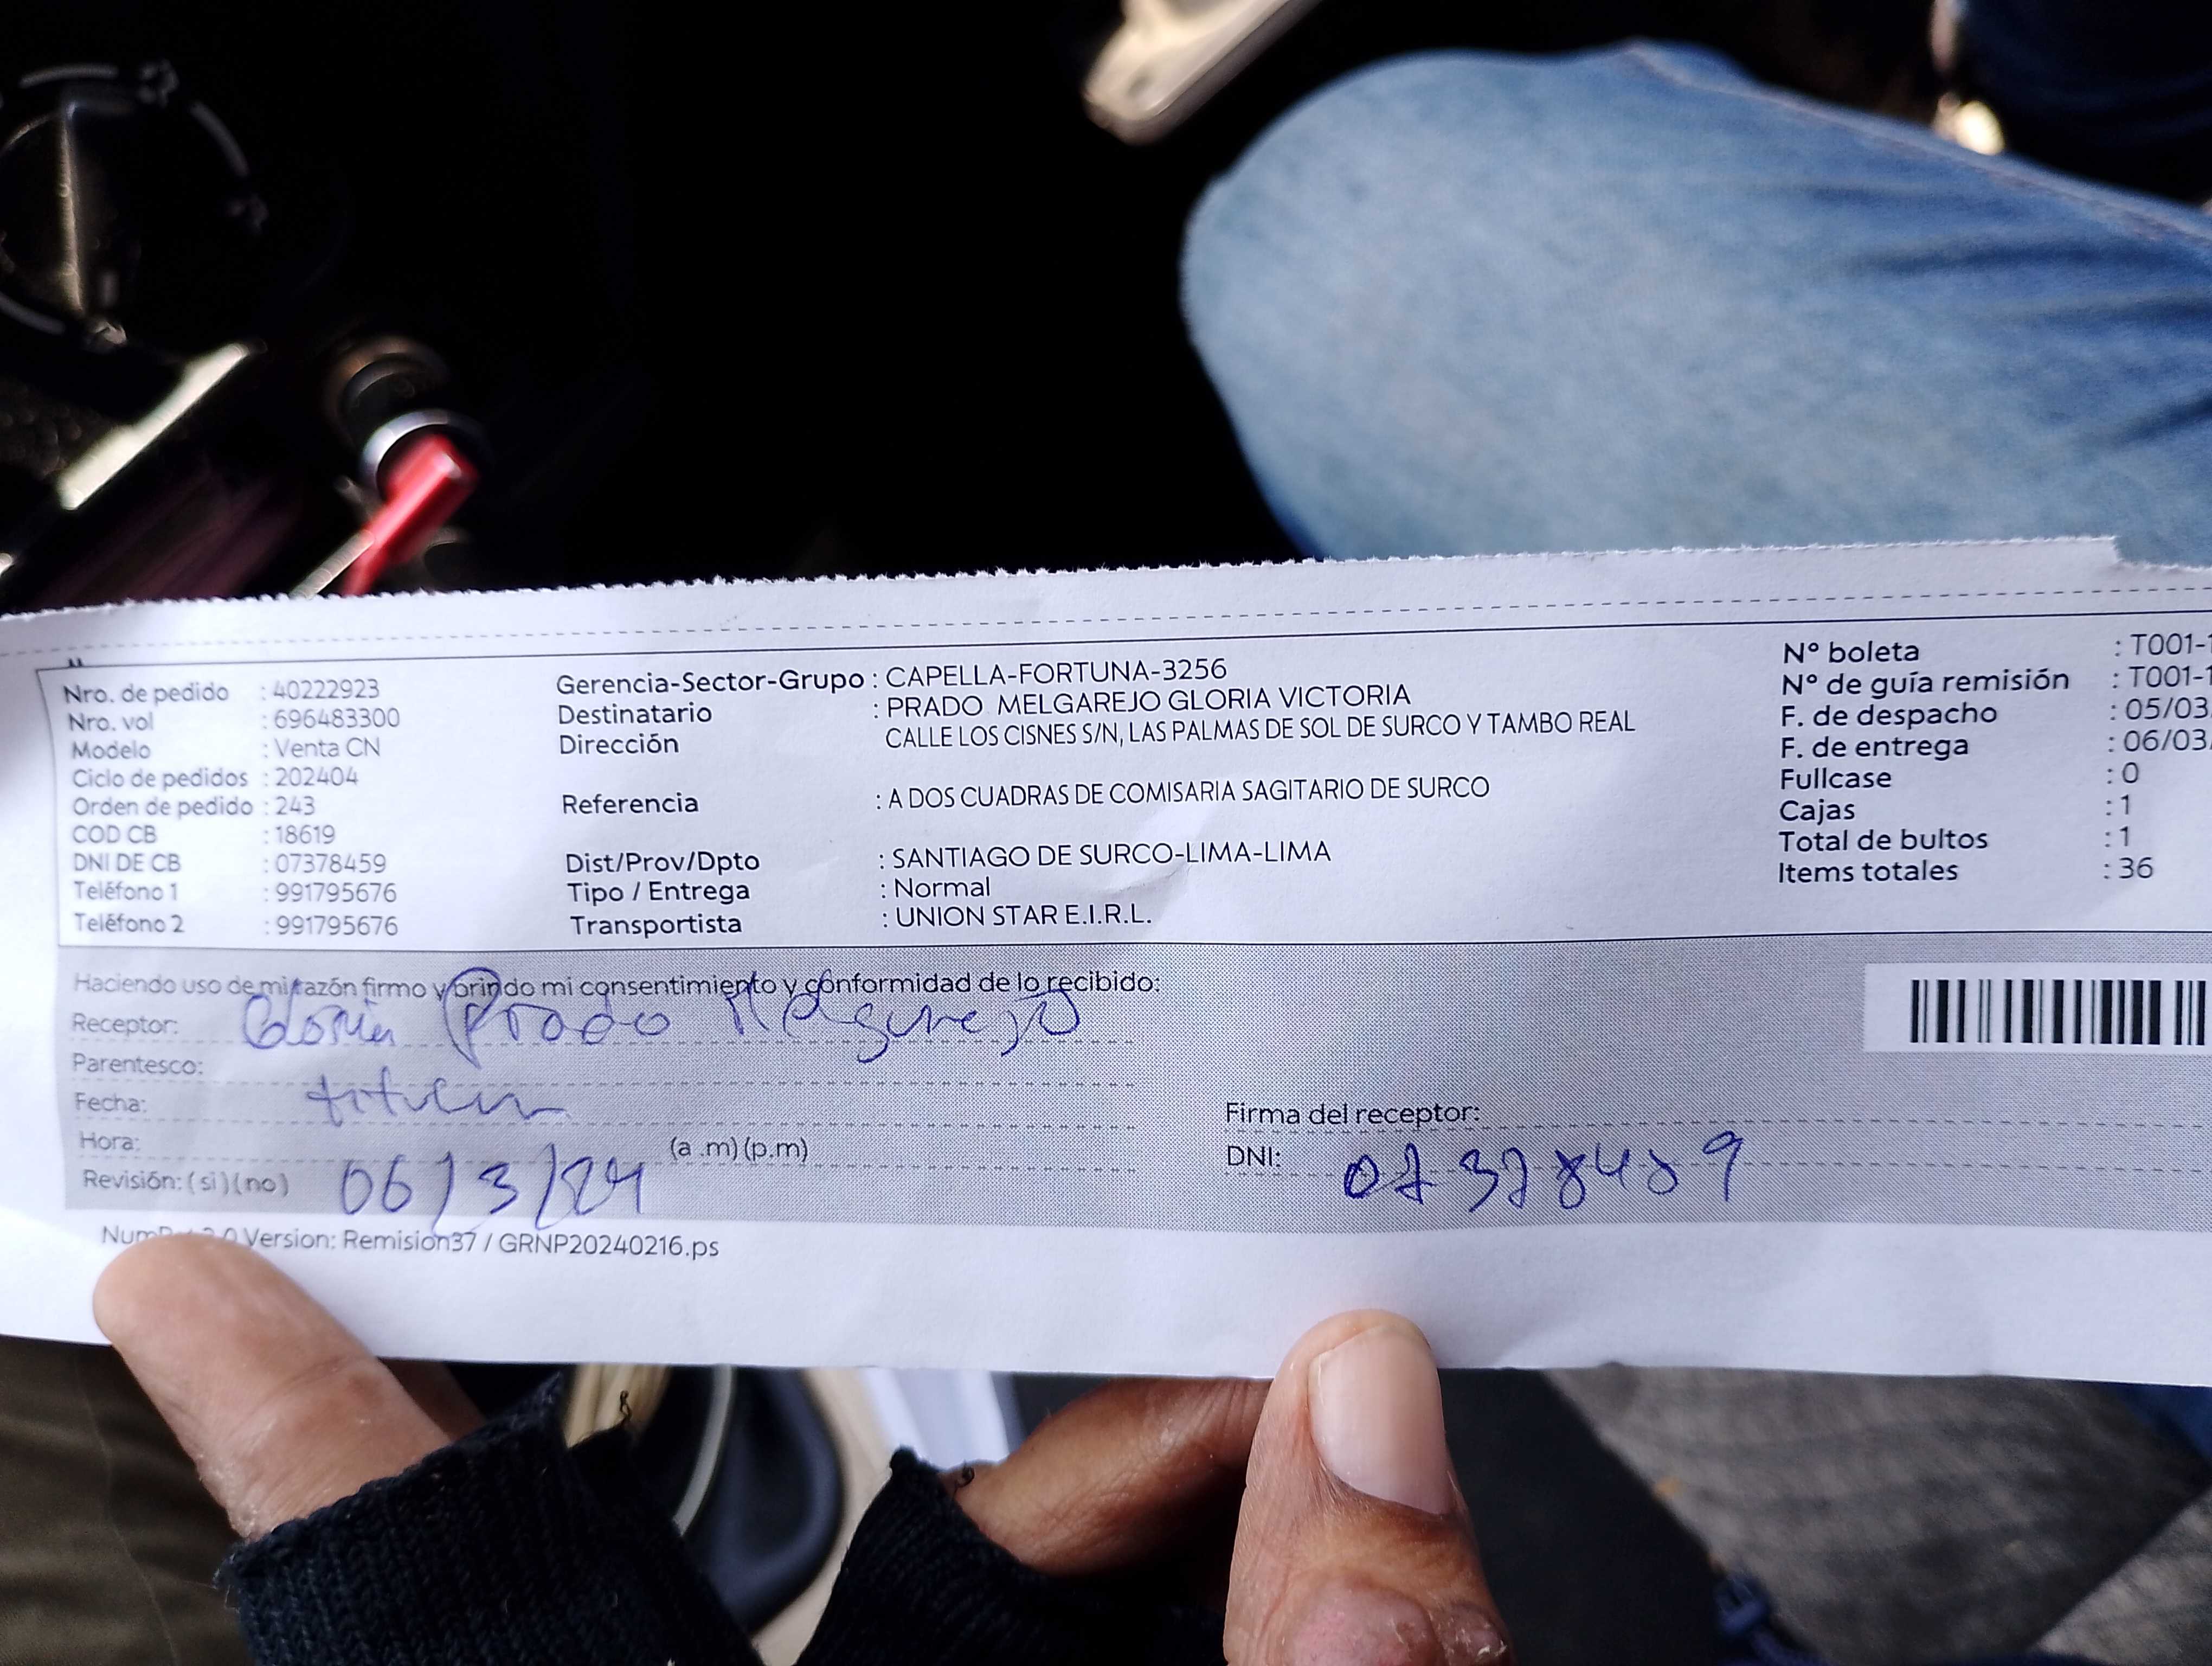 Nro. de pedido : 40222923
Nro. vol : 696483300
Modelo : Venta CN
Ciclo de pedidos : 202404
Orden de pedido : 243
COD CB : 18619
DNI DE CB : 07378459
Teléfono 1 : 991795676
Teléfono 2 : 991795676
Gerencia-Sector-Grupo : CAPELLA-FORTUNA-3256
Destinatario : PRADO MELGAREJO GLORIA VICTORIA
Dirección CALLE LOS CISNES S/N, LAS PALMAS DE SOL DE SURCO Y TAMBO REAL
Referencia : A DOS CUADRAS DE COMISARIA SAGITARIO DE SURCO
Dist/Prov/Dpto : SANTIAGO DE SURCO-LIMA-LIMA
Tipo / Entrega : Normal
Transportista : UNION STAR E.I.R.L.
N° boleta : T001-1
N° de guía remisión : T001-1
F. de despacho : 05/03
F. de entrega : 06/03
Fullcase : 0
Cajas : 1
Total de bultos : 1
Items totales : 36
Haciendo uso de mi razón firmo y brindo mi consentimiento y conformidad de lo recibido:
Receptor: Gloria Prado Melgarejo
Parentesco:
titular
Fecha:
Hora: (a .m) (p.m)
Revisión: (si) (no) 06/3/24
Firma del receptor:
DNI: 07378459
Version: Remision37 / GRNP20240216.ps